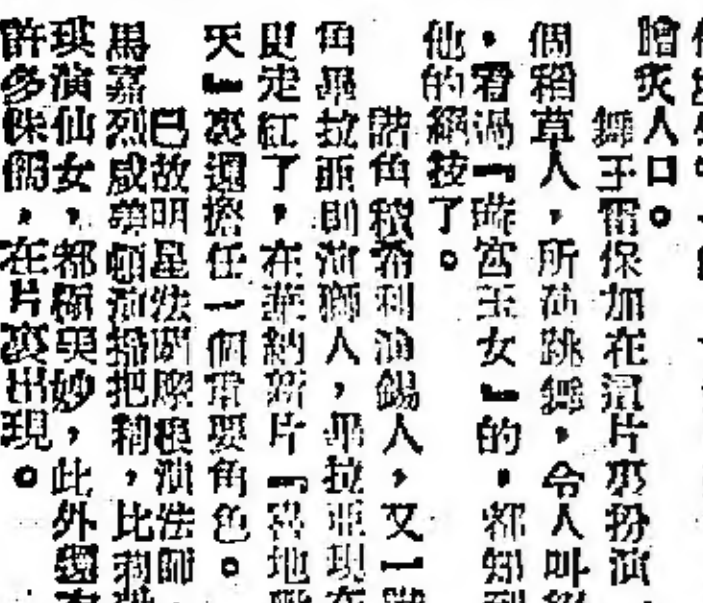 膾炙人口。
舞王雷保加在這片裏扮演
個稻草人，所演跳舞，令人叫絕
，看過『琉宮玉女』的，都知到
他的絕技了。
諧角積希利演錫人，又一諧
角畢拉亞則演獅人，畢拉亞現在
更走紅了，在華納新片『喜地
天』裏還擔任一個重要角色。
已故明星法蘭摩根演法師
馬嘉烈咸美頓演掃把精，比
琪演仙女，都極美妙，此外還有
許多侏儒，在片裏出現。